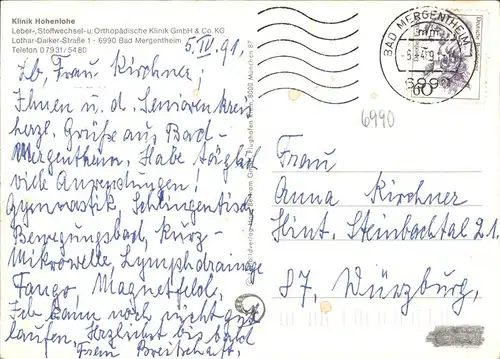 Klinik Hohenlohe
Leber-, Stoffwechsel- u. Orthopädische Klinik GmbH & Co. KG
Lothar-Daiker-Straße 1 · 6990 Bad Mergentheim
Telefon 07931/5480
5. IV. 91.
Lb. Frau Kirchner,
Ihnen u. d. Seniorenkreis
herzl. Grüße aus Bad-
Mergentheim. Habe täglich
viele Anwendungen!
Gymnastik, Schlingentisch
Bewegungsbad, Kurz-
Mikrowelle, Lymphdrainage
Fango, Magnetfeld.
Ich kann noch nicht gut
laufen. Herzlichst bis bald
Fr.
BAD MERGENTHEIM 1
60
6990
Frau
Anna Kirchner
Hint. Steinbachtal 21
87. Würzburg.